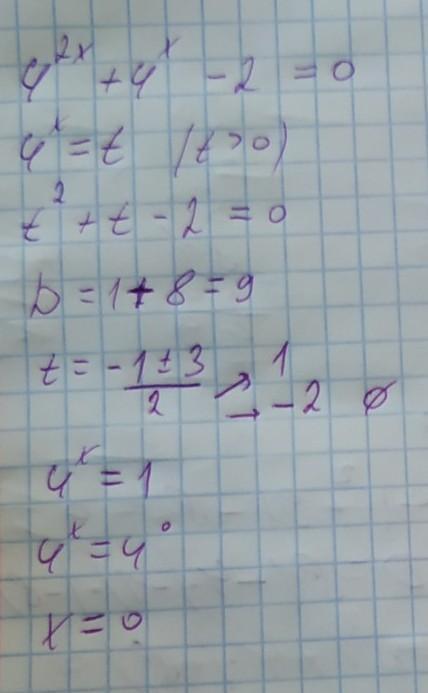 4^{2x} + 4^x - 2 = 0
4^x = t (t > 0)
t^2 + t - 2 = 0
D = 1 + 8 = 9
t = \frac{-1 ± 3}{2} ↗ 1
→ -2 ∅
4^x = 1
4^x = 4^0
x = 0